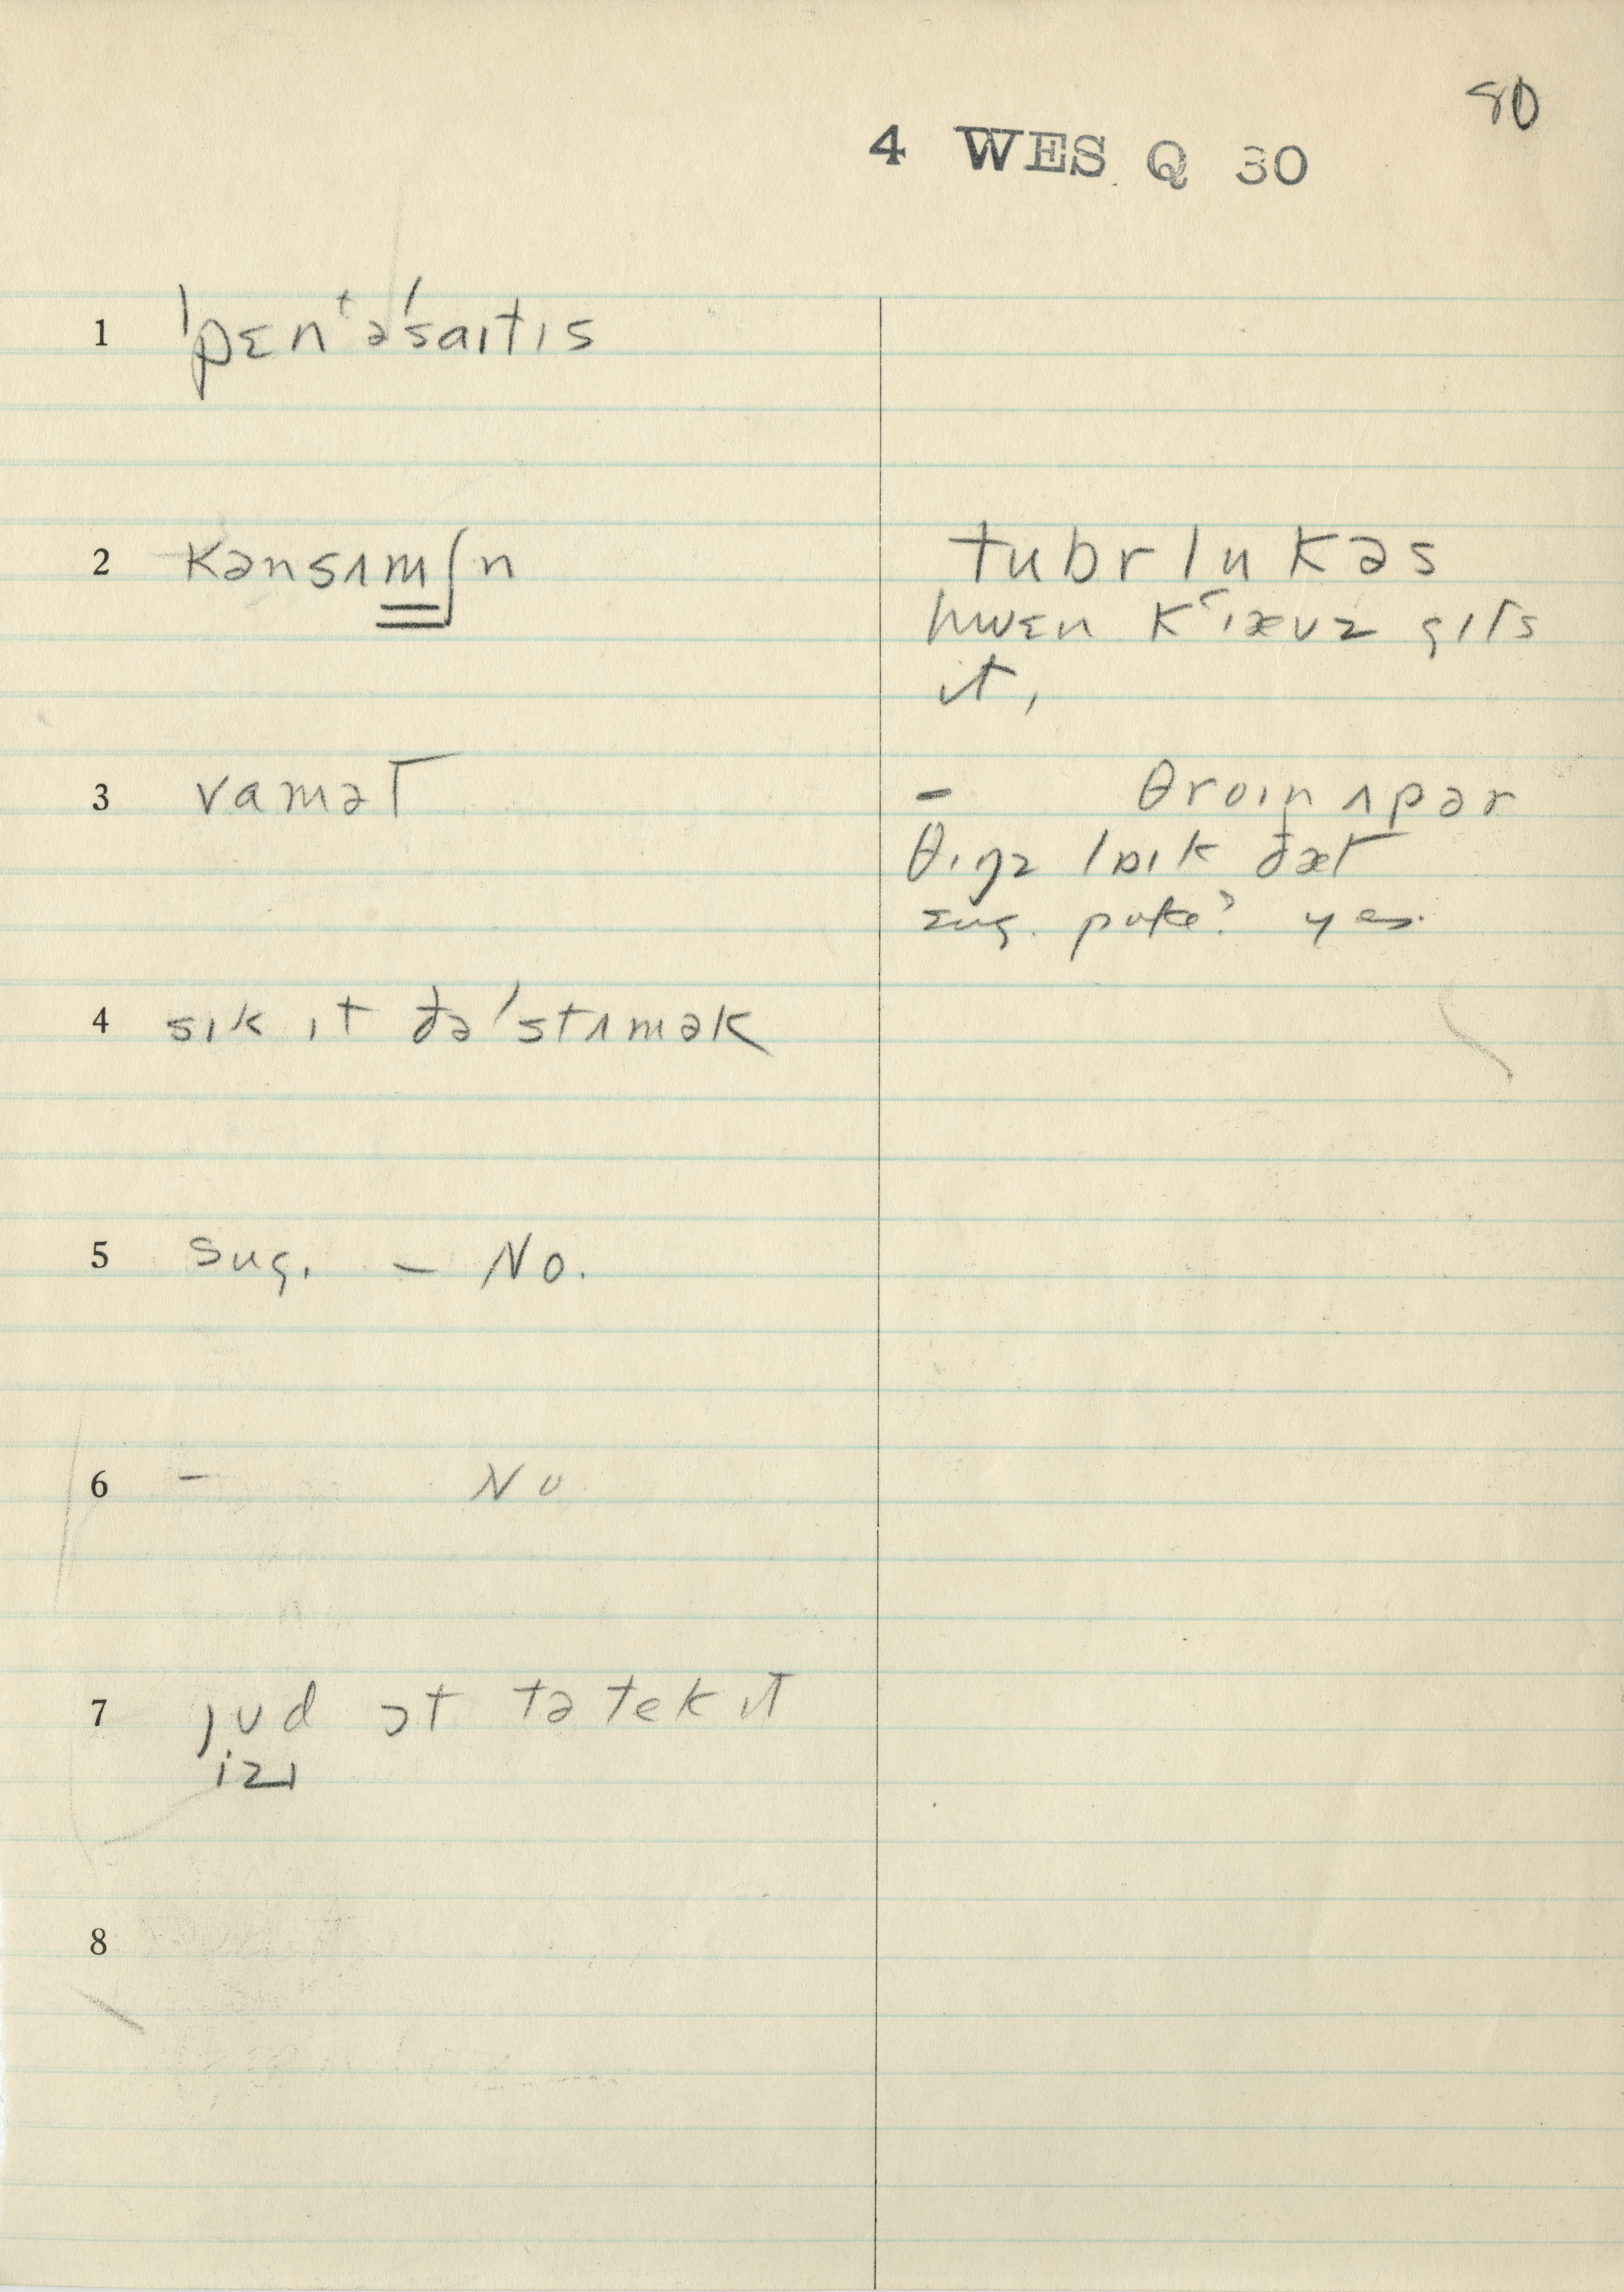 80
4 WES Q 30
1 ˈpɛnᵗəˈsaɪtɪs
2 kənsʌmʃn
tubrlukəs
hwɛn kʻɪævz gɪts
ɪt,
3 vamət
- θroɪn ʌpər
θɪŋz laɪk ðæt
sug. puke? yes.
4 sɪk ɪt ðəˈstʌmək
5 sug. - No.
6 - No
7 jud ɔt tə tek ɪt
izɪ
8